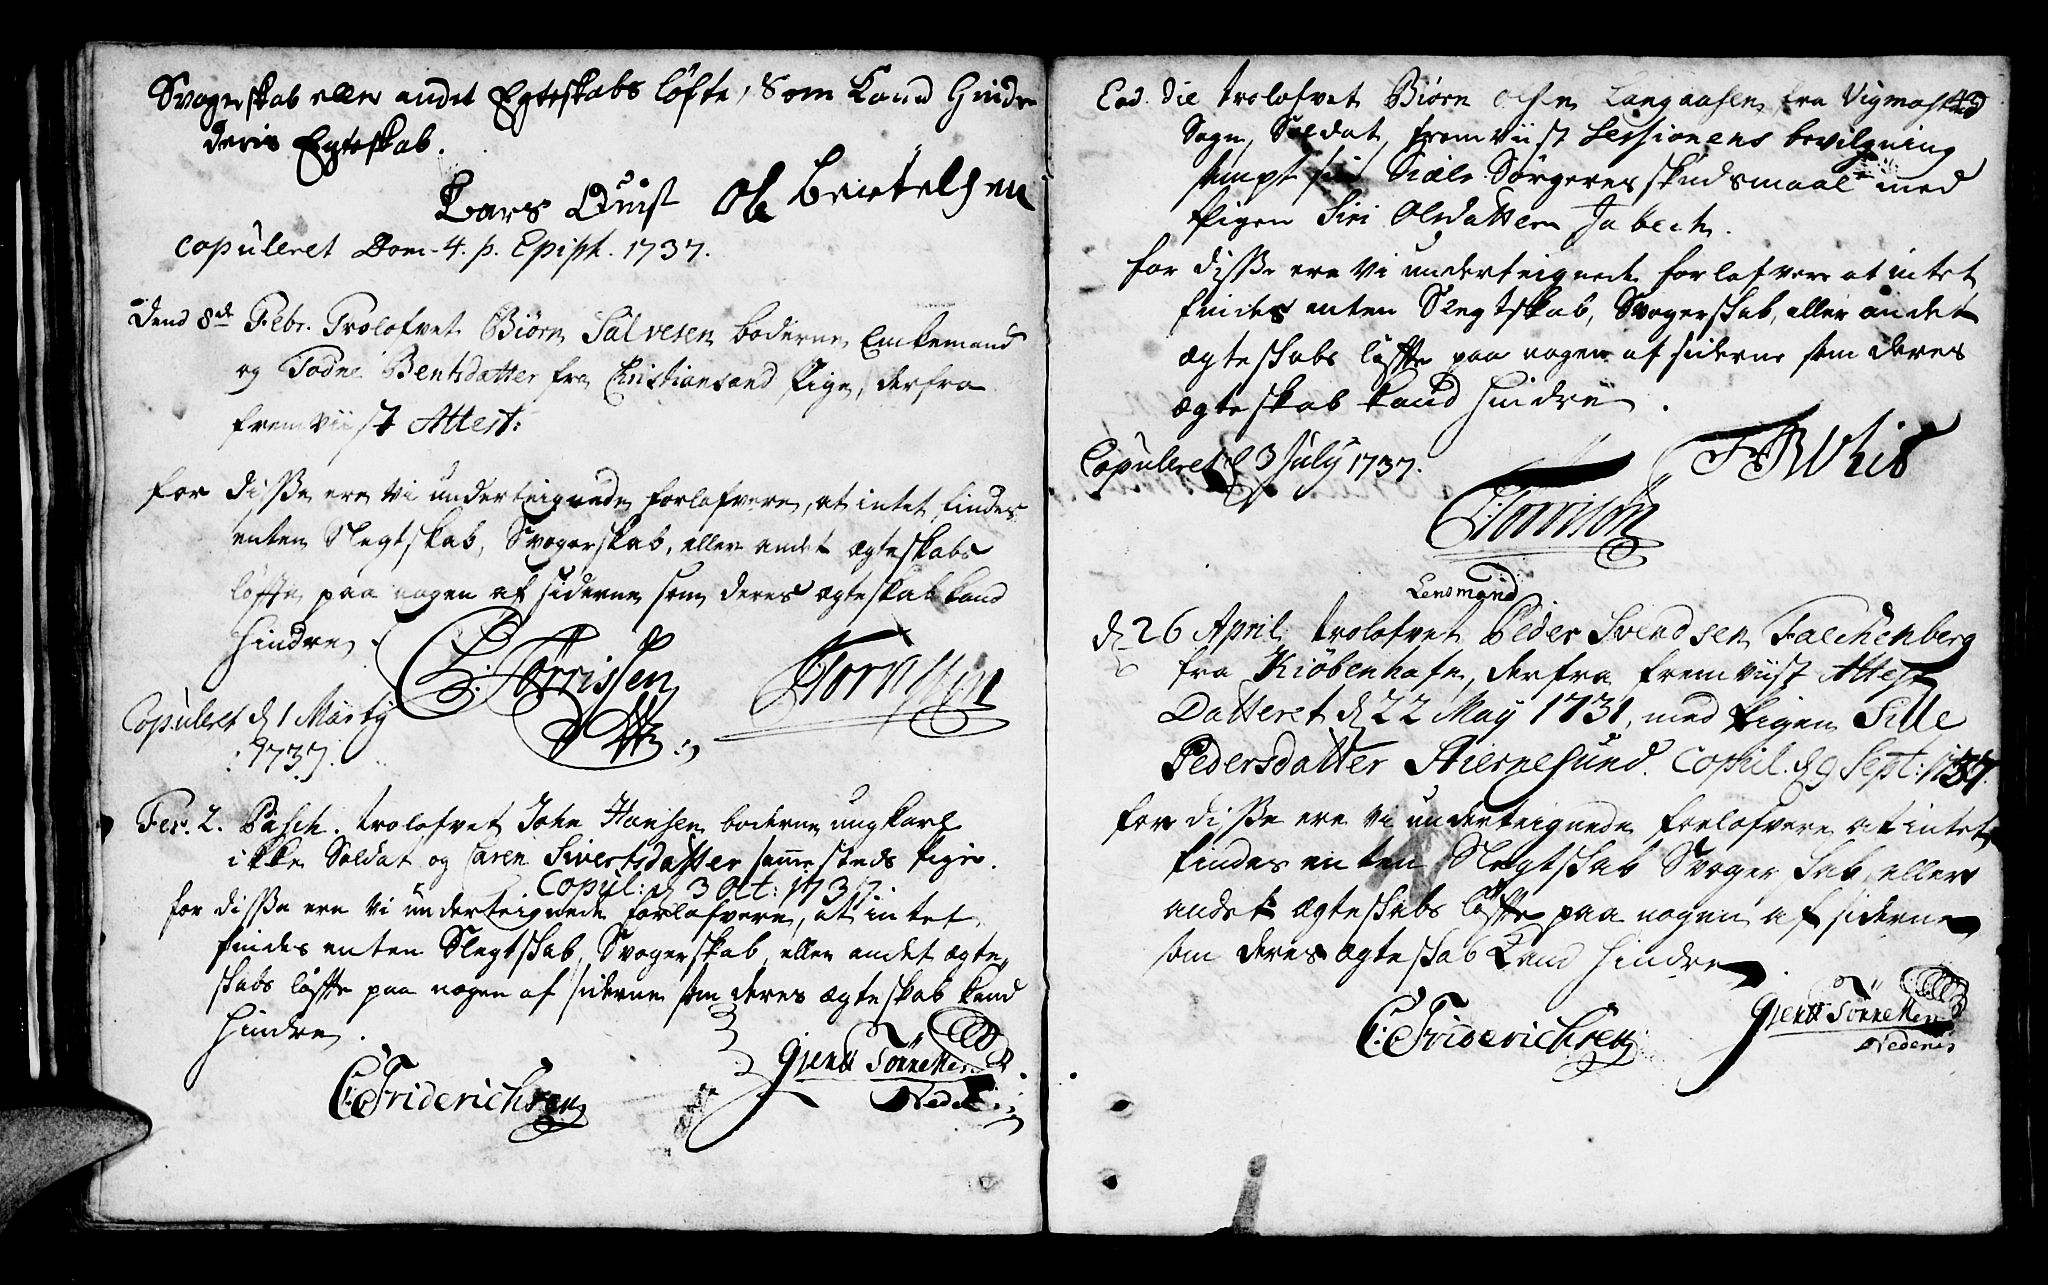 Svogerskab eller andet Egteskabs løfte, som kand hindre
deris Egteskab.
Lars Quist Ole Beritelsen
Copuleret Dom. 4. p. Epiph. 1737.
Dend 8de Febr. Trolofvet Biørn Salvesen boderne Enkemand
og Todne Bentsdatter fra Christiansand Pige, derfra
fremviist Attest:
for disse ere vi underteignede forlofvere, at intet findes
enten Slegtskab, Svogerskab, eller andet ægteskabs
løffte paa nogen af siderne som deres ægteskab kand
hindre.
C: Tørrissen
Copuleret d 1 Marty
1737.
Fer. 2. Pasch. trolofvet John Hansen boderne ungkarl
ikke Soldat og Caren Sivertsdatter sammesteds Pige.
Copul: d 3 Oct: 1737
for disse ere vi underteignede forlofvere, at intet
findes enten Slegtskab, Svogerskab, eller andet ægte-
skabs løffte paa nogen af siderne som deres ægteskab kand
hindre.
C: Friderichsen Gjentt Tønnessen
Nedenes
43
Eod. die trolofvet Biørn Olsen Langaasen fra Vigmostad
Sogn, Soldat, fremviist Sessionens bevilgning
sampt sin Siæle Sørgeres skudsmaal med
Pigen Siri Olsdatter Jabech.
for disse ere vi underteignede forlofvere at intet
findes enten Slegtskab, Svogerskab, eller andet
ægteskabs løffte paa nogen af siderne som deres
ægteskab kand hindre.
Copuleret d 3 July 1737.
Lensmand
d 26 April trolofvet Peder Svendsen Falchenberg
fra Kiøbenhafn, derfra fremviist Attest
Datteret d 22 May 1731, med Pigen Sille
Pedersdatter Stiernesund. Copul. d 9 Sept: 1737.
for disse ere vi underteignede forlofvere at intet
findes enten Slegtskab Svogerskab, eller
andet ægteskabs løffte paa nogen af siderne
som deres ægteskab kand hindre.
C: Friderichsen Gjentt Tønnessen
Nedenes